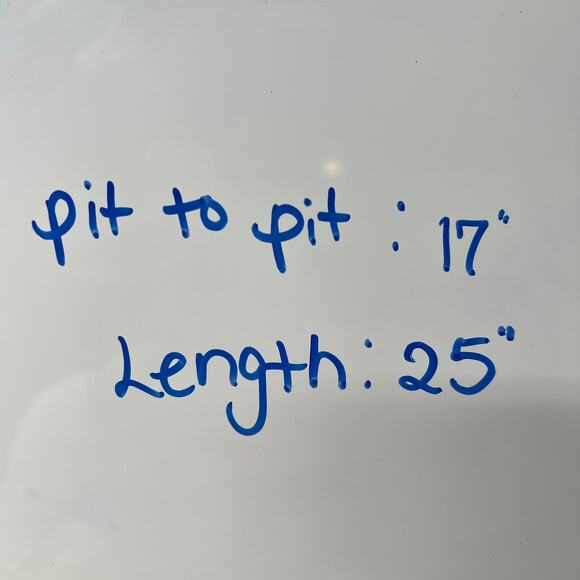 pit to pit : 17"
Length : 25"